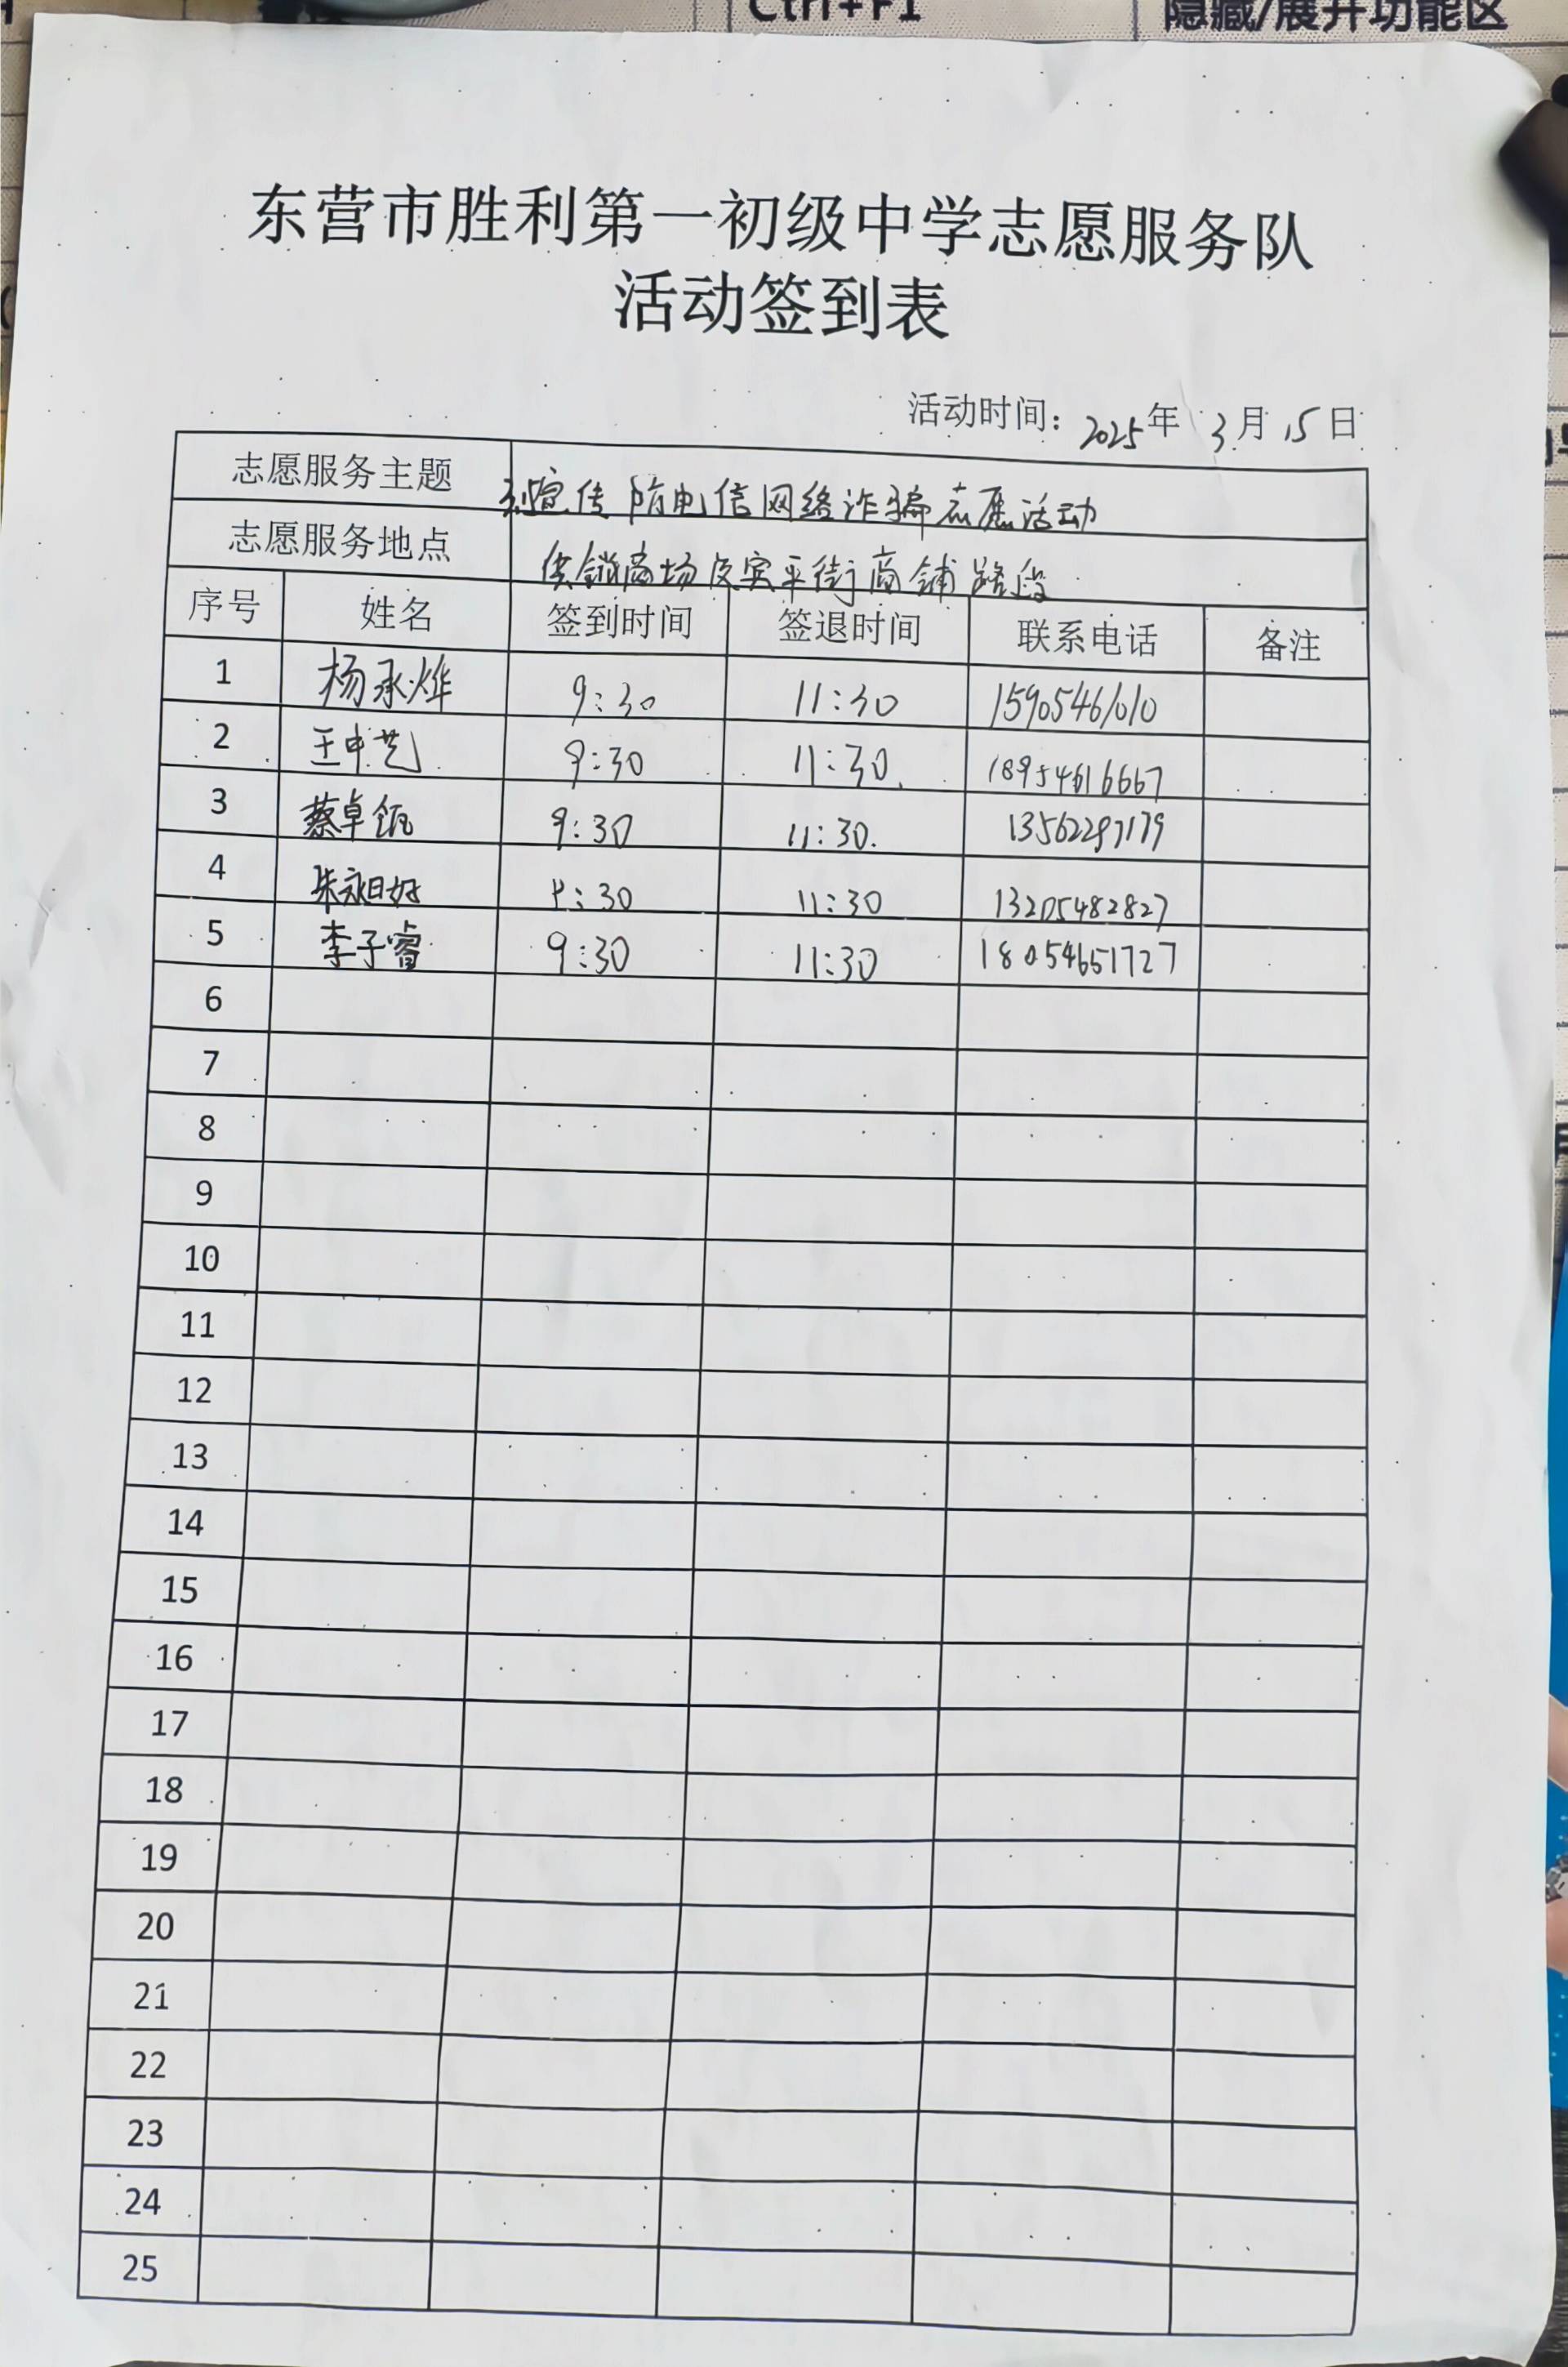 Ctrl+F1 隐藏/展开功能区
东营市胜利第一初级中学志愿服务队
活动签到表
活动时间: 2025年 3月 15日
志愿服务主题 宣传防电信网络诈骗志愿活动
志愿服务地点 供销商场及宾平街商铺路段
序号 姓名 签到时间 签退时间 联系电话 备注
1 杨承烨 9:30 11:30 15905461010
2 王申艺 9:30 11:30. 18954616667
3 蔡卓 9:30 11:30. 13562297179
4 朱 :30 11:30 13205482827
5 李子睿 9:30 11:30 18054651727
6
7
8
9
10
11
12
13
14
15
16
17
18
19
20
21
22
23
24
25